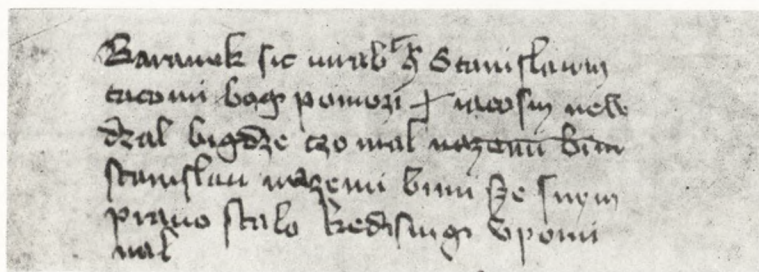 Baranek sic iurab Stanislaum
tacomi bog pomozi + iacosm newe
dzal bigdze czo mal nazemi bim
stanislau nazemi bimi sze snym
prawo stalo kedismgi vpomi
nal